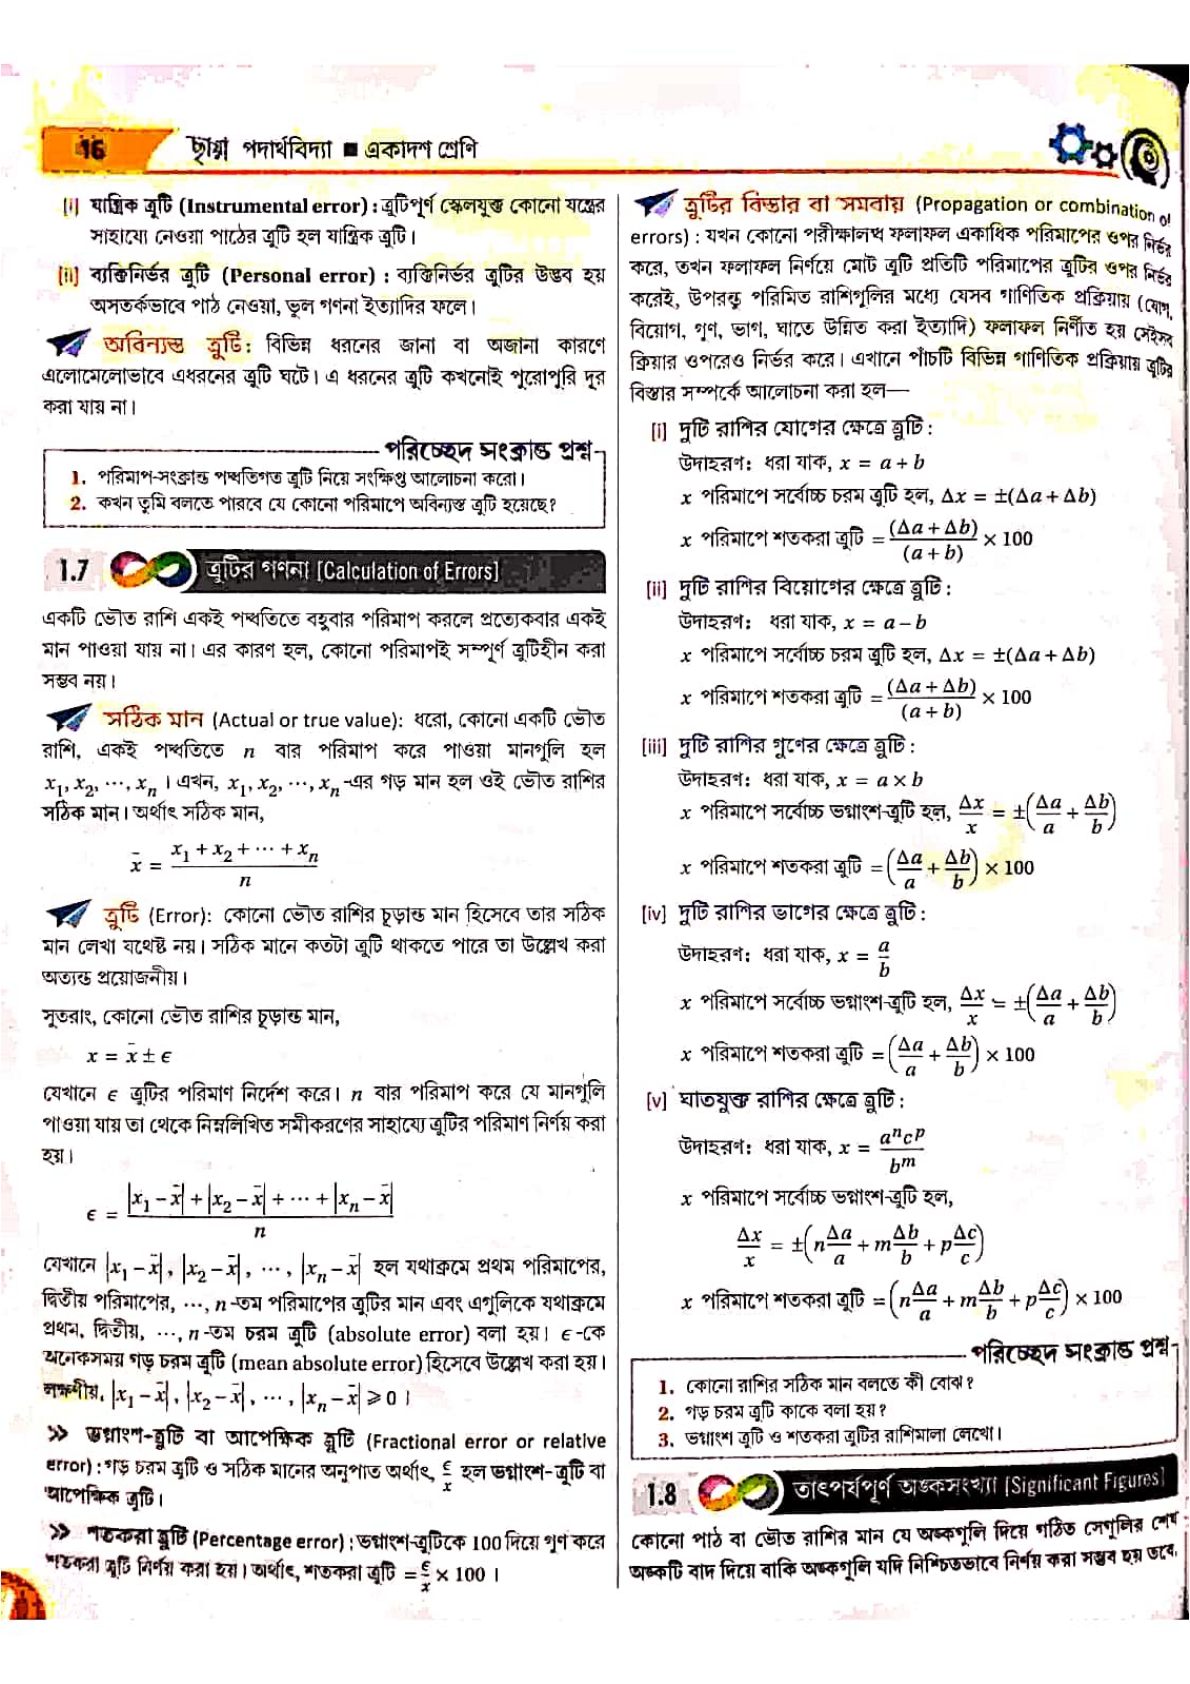 16 ছায়া পদার্থবিদ্যা ■ একাদশ শ্রেণি
[i] যান্ত্রিক ত্রুটি (Instrumental error) : ত্রুটিপূর্ণ স্কেলযুক্ত কোনো যন্ত্রের
সাহায্যে নেওয়া পাঠের ত্রুটি হল যান্ত্রিক ত্রুটি।
[ii] ব্যক্তিনির্ভর ত্রুটি (Personal error) : ব্যক্তিনির্ভর ত্রুটির উদ্ভব হয়
অসতর্কভাবে পাঠ নেওয়া, ভুল গণনা ইত্যাদির ফলে।
অবিন্যস্ত ত্রুটি: বিভিন্ন ধরনের জানা বা অজানা কারণে
এলোমেলোভাবে এধরনের ত্রুটি ঘটে। এ ধরনের ত্রুটি কখনোই পুরোপুরি দূর
করা যায় না।
পরিচ্ছেদ সংক্রান্ত প্রশ্ন
1. পরিমাপ-সংক্রান্ত পদ্ধতিগত ত্রুটি নিয়ে সংক্ষিপ্ত আলোচনা করো।
2. কখন তুমি বলতে পারবে যে কোনো পরিমাপে অবিন্যস্ত ত্রুটি হয়েছে?
1.7 ত্রুটির গণনা [Calculation of Errors]
একটি ভৌত রাশি একই পদ্ধতিতে বহুবার পরিমাপ করলে প্রত্যেকবার একই
মান পাওয়া যায় না। এর কারণ হল, কোনো পরিমাপই সম্পূর্ণ ত্রুটিহীন করা
সম্ভব নয়।
সঠিক মান (Actual or true value): ধরো, কোনো একটি ভৌত
রাশি, একই পদ্ধতিতে n বার পরিমাপ করে পাওয়া মানগুলি হল
x₁, x₂, ⋯, xₙ । এখন, x₁, x₂, ⋯, xₙ-এর গড় মান হল ওই ভৌত রাশির
সঠিক মান। অর্থাৎ সঠিক মান,
x̄ = (x₁ + x₂ + ⋯ + xₙ)/n
ত্রুটি (Error): কোনো ভৌত রাশির চূড়ান্ত মান হিসেবে তার সঠিক
মান লেখা যথেষ্ট নয়। সঠিক মানে কতটা ত্রুটি থাকতে পারে তা উল্লেখ করা
অত্যন্ত প্রয়োজনীয়।
সুতরাং, কোনো ভৌত রাশির চূড়ান্ত মান,
x = x̄ ± ϵ
যেখানে ϵ ত্রুটির পরিমাণ নির্দেশ করে। n বার পরিমাপ করে যে মানগুলি
পাওয়া যায় তা থেকে নিম্নলিখিত সমীকরণের সাহায্যে ত্রুটির পরিমাণ নির্ণয় করা
হয়।
ϵ = (|x₁ − x̄| + |x₂ − x̄| + ⋯ + |xₙ − x̄|)/n
যেখানে |x₁ − x̄|, |x₂ − x̄|, ⋯, |xₙ − x̄| হল যথাক্রমে প্রথম পরিমাপের,
দ্বিতীয় পরিমাপের, ⋯, n-তম পরিমাপের ত্রুটির মান এবং এগুলিকে যথাক্রমে
প্রথম, দ্বিতীয়, ⋯, n-তম চরম ত্রুটি (absolute error) বলা হয়। ϵ-কে
অনেকসময় গড় চরম ত্রুটি (mean absolute error) হিসেবে উল্লেখ করা হয়।
লক্ষণীয়, |x₁ − x̄|, |x₂ − x̄|, ⋯, |xₙ − x̄| ⩾ 0 ।
» ভগ্নাংশ-ত্রুটি বা আপেক্ষিক ত্রুটি (Fractional error or relative
error) : গড় চরম ত্রুটি ও সঠিক মানের অনুপাত অর্থাৎ, ϵ/x হল ভগ্নাংশ-ত্রুটি বা
আপেক্ষিক ত্রুটি।
» শতকরা ত্রুটি (Percentage error) : ভগ্নাংশ-ত্রুটিকে 100 দিয়ে গুণ করে
শতকরা ত্রুটি নির্ণয় করা হয়। অর্থাৎ, শতকরা ত্রুটি = ϵ/x × 100 ।
ত্রুটির বিস্তার বা সমবায় (Propagation or combination of
errors) : যখন কোনো পরীক্ষালব্ধ ফলাফল একাধিক পরিমাপের ওপর নির্ভর
করে, তখন ফলাফল নির্ণয়ে মোট ত্রুটি প্রতিটি পরিমাপের ত্রুটির ওপর নির্ভর
করেই, উপরন্তু পরিমিত রাশিগুলির মধ্যে যেসব গাণিতিক প্রক্রিয়ায় (যোগ,
বিয়োগ, গুণ, ভাগ, ঘাতে উন্নিত করা ইত্যাদি) ফলাফল নির্ণীত হয় সেইসব
ক্রিয়ার ওপরেও নির্ভর করে। এখানে পাঁচটি বিভিন্ন গাণিতিক প্রক্রিয়ায় ত্রুটির
বিস্তার সম্পর্কে আলোচনা করা হল—
[i] দুটি রাশির যোগের ক্ষেত্রে ত্রুটি :
উদাহরণ: ধরা যাক, x = a + b
x পরিমাপে সর্বোচ্চ চরম ত্রুটি হল, Δx = ±(Δa + Δb)
x পরিমাপে শতকরা ত্রুটি = (Δa + Δb)/(a + b) × 100
[ii] দুটি রাশির বিয়োগের ক্ষেত্রে ত্রুটি :
উদাহরণ: ধরা যাক, x = a − b
x পরিমাপে সর্বোচ্চ চরম ত্রুটি হল, Δx = ±(Δa + Δb)
x পরিমাপে শতকরা ত্রুটি = (Δa + Δb)/(a + b) × 100
[iii] দুটি রাশির গুণের ক্ষেত্রে ত্রুটি :
উদাহরণ: ধরা যাক, x = a × b
x পরিমাপে সর্বোচ্চ ভগ্নাংশ-ত্রুটি হল, Δx/x = ±(Δa/a + Δb/b)
x পরিমাপে শতকরা ত্রুটি = (Δa/a + Δb/b) × 100
[iv] দুটি রাশির ভাগের ক্ষেত্রে ত্রুটি :
উদাহরণ: ধরা যাক, x = a/b
x পরিমাপে সর্বোচ্চ ভগ্নাংশ-ত্রুটি হল, Δx/x = ±(Δa/a + Δb/b)
x পরিমাপে শতকরা ত্রুটি = (Δa/a + Δb/b) × 100
[v] ঘাতযুক্ত রাশির ক্ষেত্রে ত্রুটি :
উদাহরণ: ধরা যাক, x = aⁿcᵖ/bᵐ
x পরিমাপে সর্বোচ্চ ভগ্নাংশ-ত্রুটি হল,
Δx/x = ±(nΔa/a + mΔb/b + pΔc/c)
x পরিমাপে শতকরা ত্রুটি = (nΔa/a + mΔb/b + pΔc/c) × 100
পরিচ্ছেদ সংক্রান্ত প্রশ্ন
1. কোনো রাশির সঠিক মান বলতে কী বোঝ?
2. গড় চরম ত্রুটি কাকে বলা হয়?
3. ভগ্নাংশ ত্রুটি ও শতকরা ত্রুটির রাশিমালা লেখো।
1.8 তাৎপর্যপূর্ণ অঙ্কসংখ্যা [Significant Figures]
কোনো পাঠ বা ভৌত রাশির মান যে অঙ্কগুলি দিয়ে গঠিত সেগুলির শেষ
অঙ্কটি বাদ দিয়ে বাকি অঙ্কগুলি যদি নিশ্চিতভাবে নির্ণয় করা সম্ভব হয় তবে,